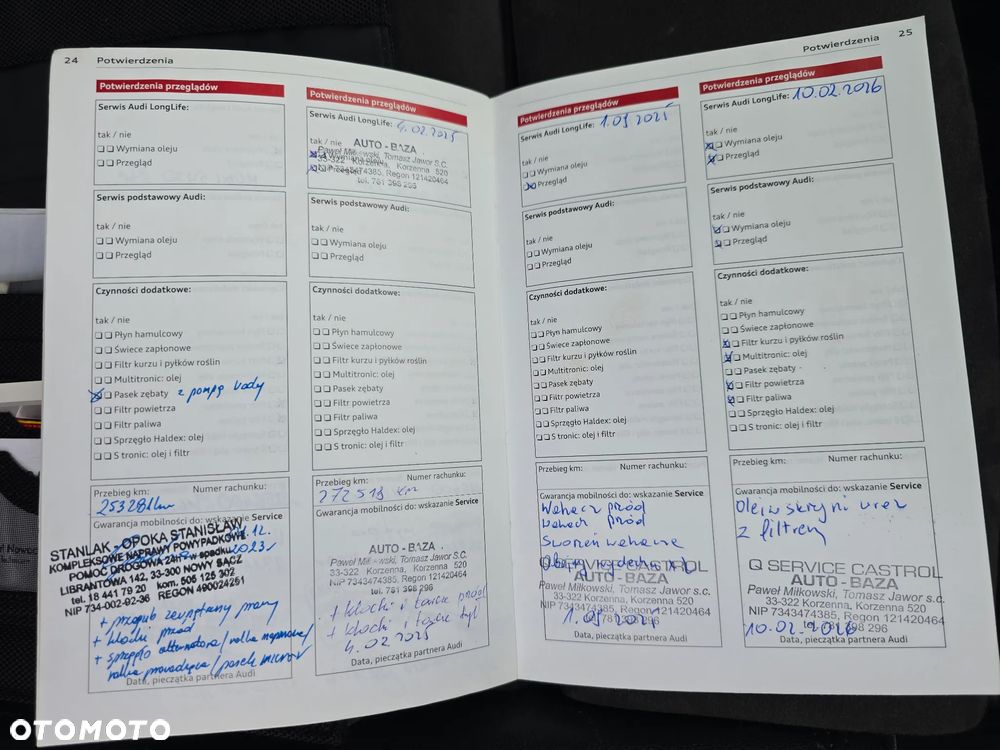 24 Potwierdzenia
Potwierdzenia przeglądów
Serwis Audi LongLife:
tak / nie
Wymiana oleju
Przegląd
Serwis podstawowy Audi:
tak / nie
Wymiana oleju
Przegląd
Czynności dodatkowe:
tak / nie
Płyn hamulcowy
Świece zapłonowe
Filtr kurzu i pyłków roślin
Multitronic: olej
Pasek zębaty z pompą wody
Filtr powietrza
Filtr paliwa
Sprzęgło Haldex: olej
S tronic: olej i filtr
Przebieg km: Numer rachunku:
253281km
Gwarancja mobilności do: wskazanie Service
STANLAK - OPOKA STANISŁAW
KOMPLEKSOWE NAPRAWY POWYPADKOWE
POMOC DROGOWA 24h w spadku
LIBRANTOWA 142, 33-300 NOWY SĄCZ
tel. 18 441 79 20 kom. 506 125 302
NIP 734-002-92-36 REGON 490024251
12.
2023
+ przegub zewnętrzny prawy
+ klocki przód
+ sprzęgło alternatora / rolka napinowa /
rolka prowadząca / pasek micro V
Data, pieczątka partnera Audi
Potwierdzenia przeglądów
Serwis Audi LongLife: 4.02.2025
tak / nie
Wymiana oleju
Przegląd
AUTO - BAZA
Paweł Miłkowski, Tomasz Jawor s.c.
33-322 Korzenna, Korzenna 520
NIP 7343474385, Regon 121420464
tel. 781 398 296
Serwis podstawowy Audi:
tak / nie
Wymiana oleju
Przegląd
Czynności dodatkowe:
tak / nie
Płyn hamulcowy
Świece zapłonowe
Filtr kurzu i pyłków roślin
Multitronic: olej
Pasek zębaty
Filtr powietrza
Filtr paliwa
Sprzęgło Haldex: olej
S tronic: olej i filtr
Przebieg km: Numer rachunku:
272518 km
Gwarancja mobilności do: wskazanie Service
AUTO - BAZA
Paweł Miłkowski, Tomasz Jawor s.c.
33-322 Korzenna, Korzenna 520
NIP 7343474385, Regon 121420464
tel. 781 398 296
+ klocki i tarcze przód
+ klocki i tarcze tył
4.02 2025
Data, pieczątka partnera Audi
Potwierdzenia 25
Potwierdzenia przeglądów
Serwis Audi LongLife: 1.09 2025
tak / nie
Wymiana oleju
Przegląd
Serwis podstawowy Audi:
tak / nie
Wymiana oleju
Przegląd
Czynności dodatkowe:
tak / nie
Płyn hamulcowy
Świece zapłonowe
Filtr kurzu i pyłków roślin
Multitronic: olej
Pasek zębaty
Filtr powietrza
Filtr paliwa
Sprzęgło Haldex: olej
S tronic: olej i filtr
Przebieg km: Numer rachunku:
Gwarancja mobilności do: wskazanie Service
Wahacz przód
wahacz przód
Sworzeń wahacza
CASTROL
AUTO - BAZA
Paweł Miłkowski, Tomasz Jawor s.c.
33-322 Korzenna, Korzenna 520
NIP 7343474385, Regon 121420464
781 398 296
1.09 2025
Data, pieczątka partnera Audi
Potwierdzenia przeglądów
Serwis Audi LongLife: 10.02.2026
tak / nie
Wymiana oleju
Przegląd
Serwis podstawowy Audi:
tak / nie
Wymiana oleju
Przegląd
Czynności dodatkowe:
tak / nie
Płyn hamulcowy
Świece zapłonowe
Filtr kurzu i pyłków roślin
Multitronic: olej
Pasek zębaty
Filtr powietrza
Filtr paliwa
Sprzęgło Haldex: olej
S tronic: olej i filtr
Przebieg km: Numer rachunku:
Gwarancja mobilności do: wskazanie Service
Olej w skrzyni wraz
z filtrem
Q SERVICE CASTROL
AUTO - BAZA
Paweł Miłkowski, Tomasz Jawor s.c.
33-322 Korzenna, Korzenna 520
NIP 7343474385, Regon 121420464
tel. 781 398 296
10.02.2026
Data, pieczątka partnera Audi
OTOMOTO